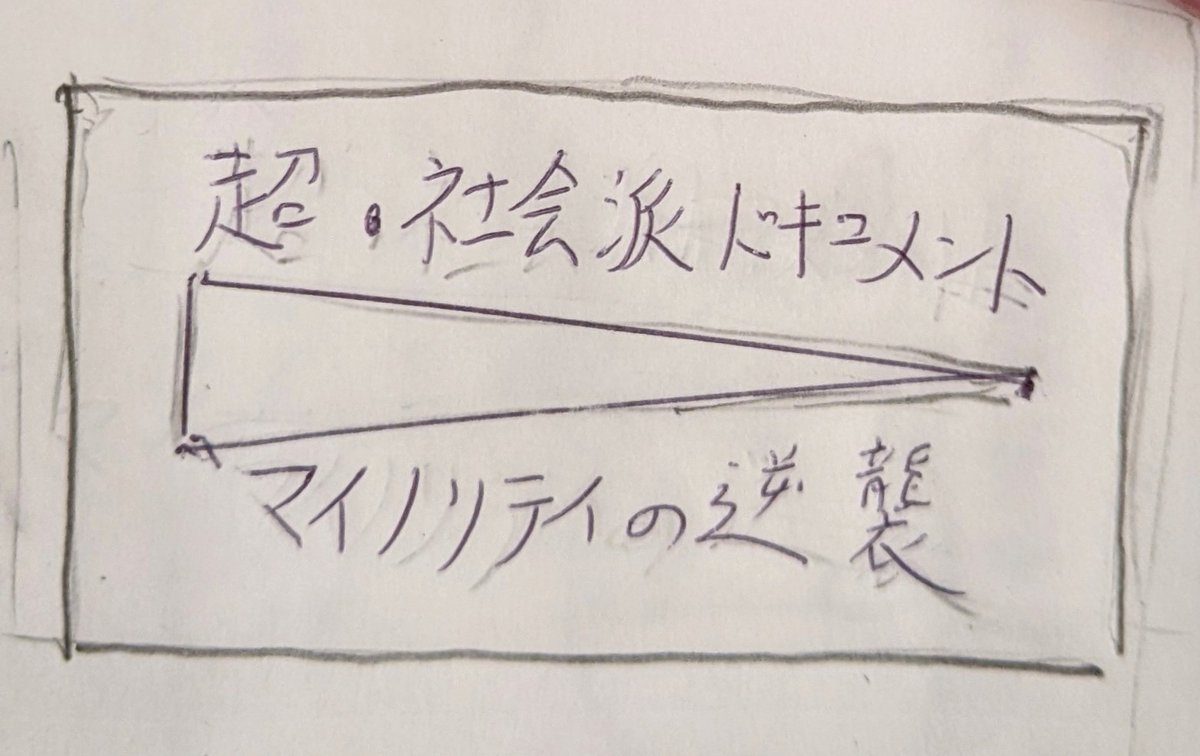 超・社会派ドキュメント
マイノリティの逆襲